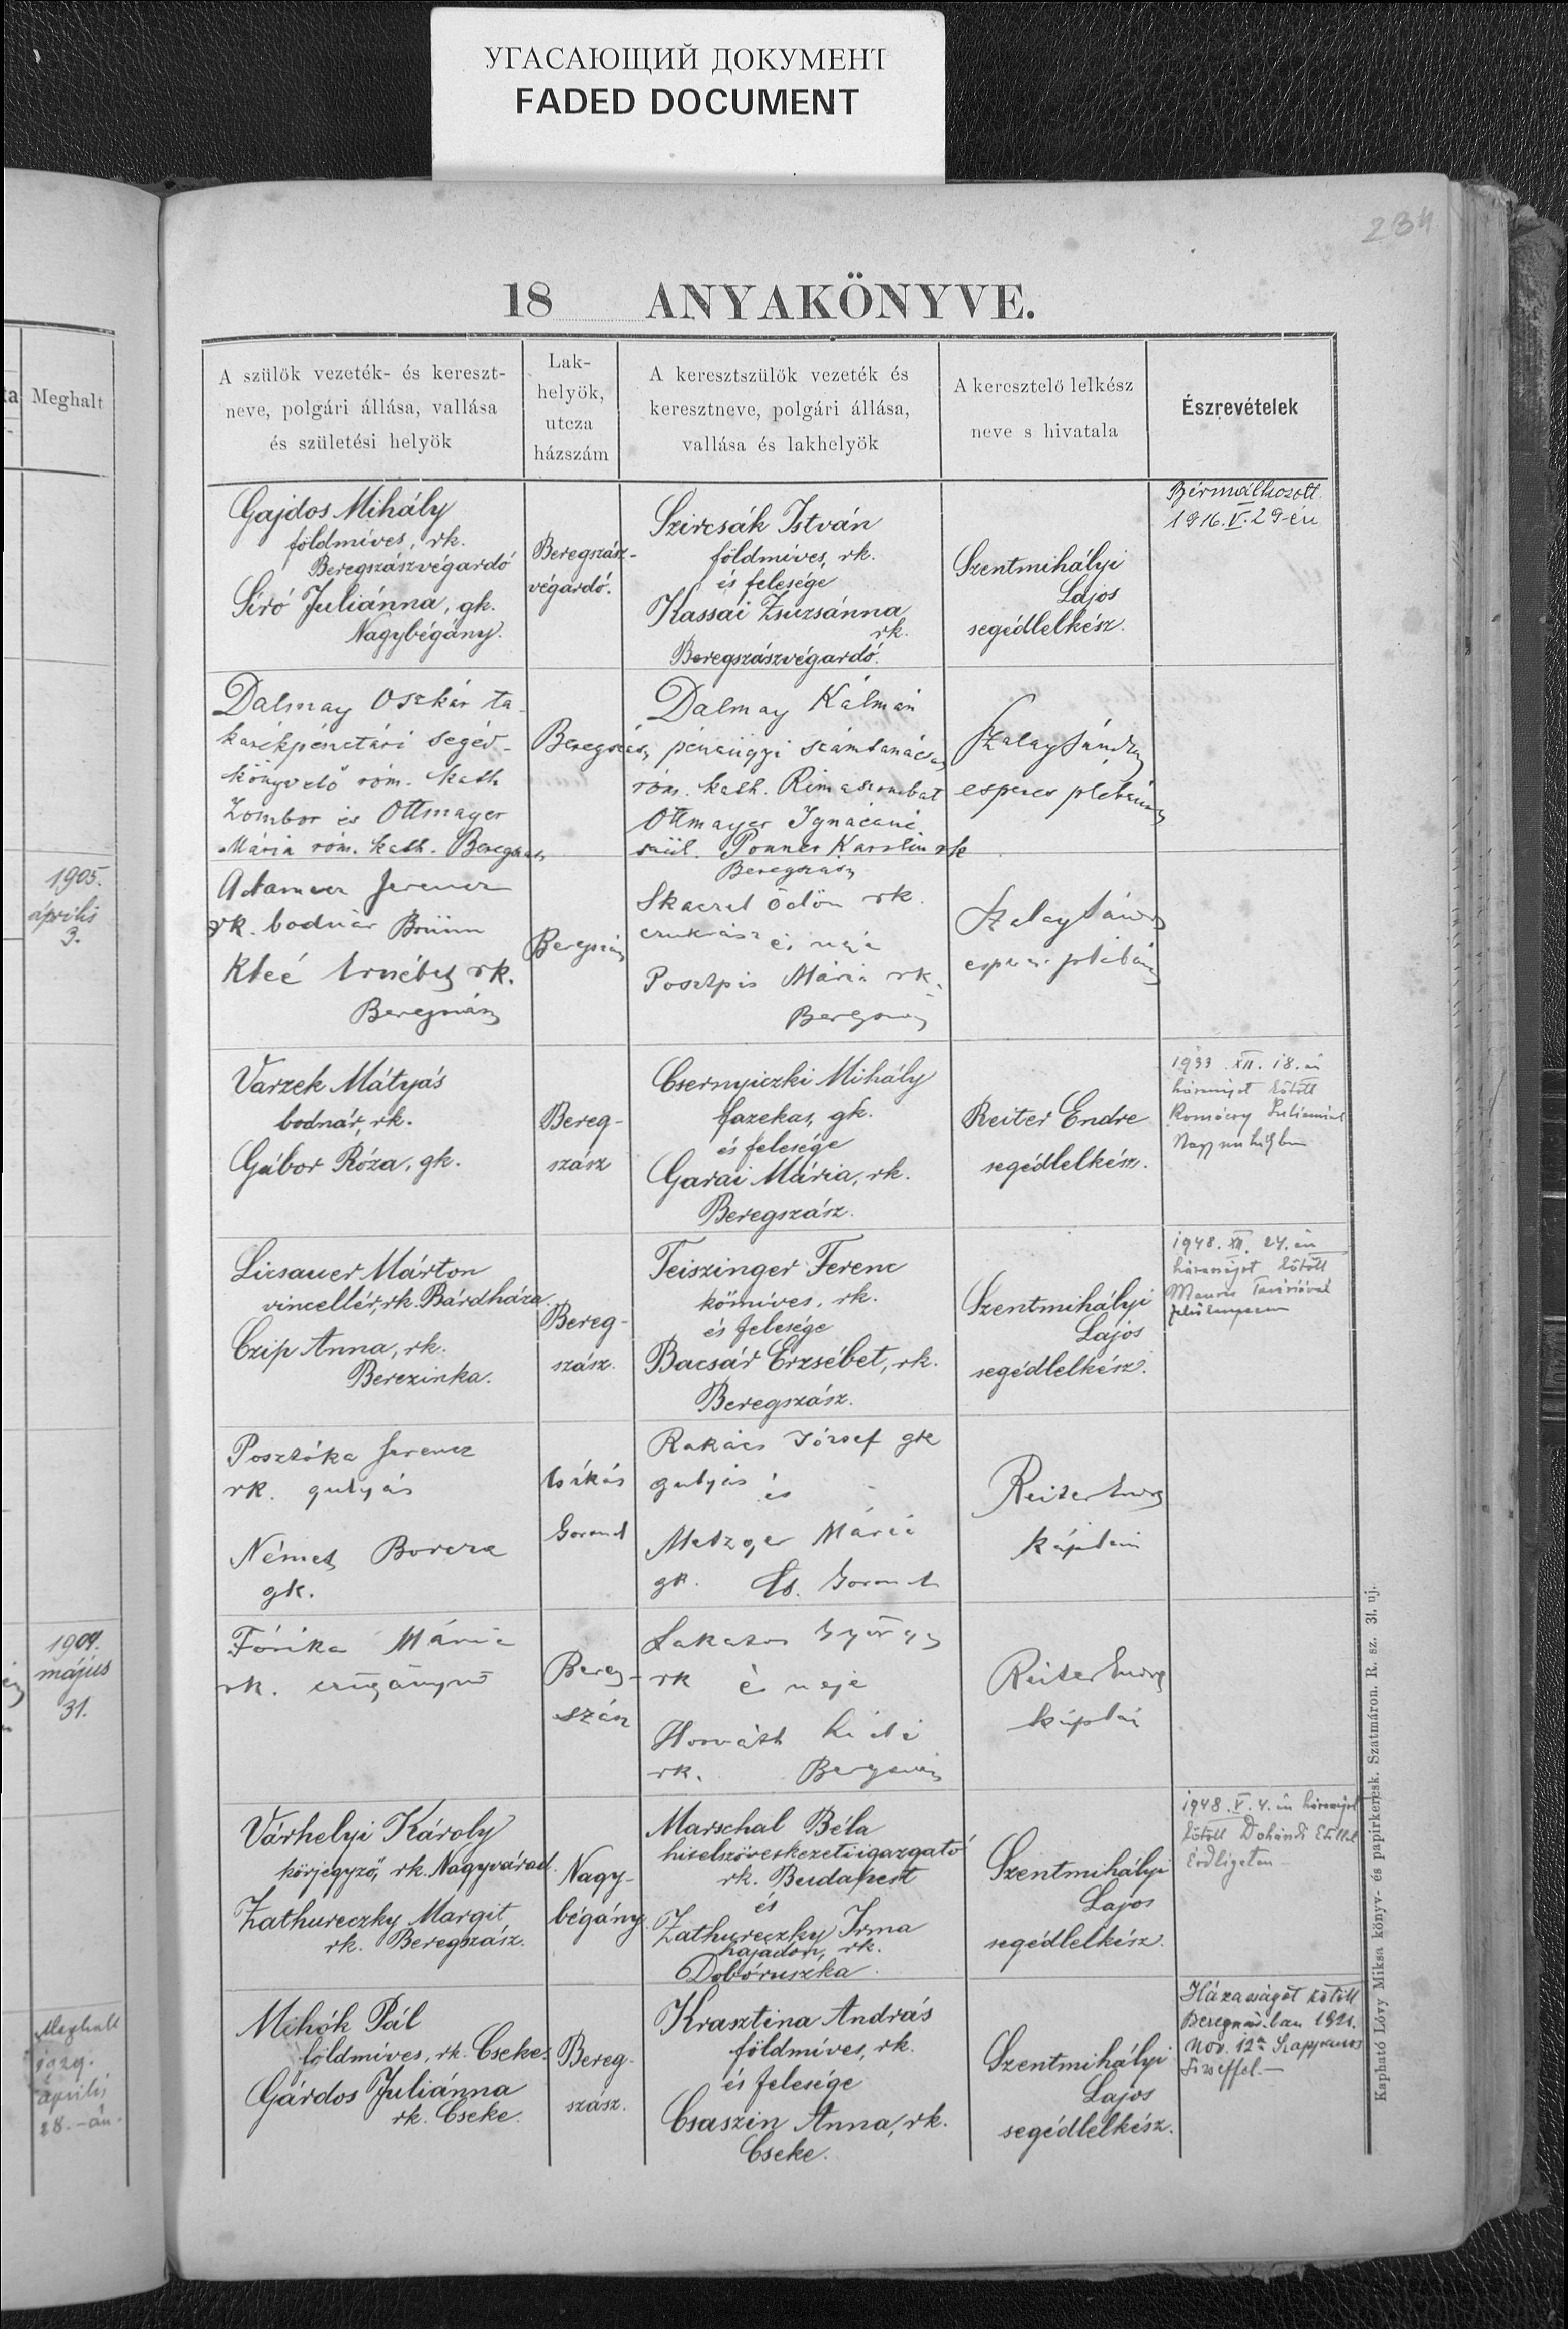 УГАСАЮЩИЙ ДОКУМЕНТ
FADED DOCUMENT
234
18 ANYAKÖNYVE.
ta
Meghalt
A szülök vezeték- és kereszt-
neve, polgári állása, vallása
és születési helyök
Lak-
helyök,
utcza
házszám
A keresztszülök vezeték és
keresztneve, polgári állása,
vallása és lakhelyök
A keresztelö lelkész
neve s hivatala
Észrevételek
Gajdos Mihály
földmíves, rk.
Beregszászvégardó
Síró Juliánna, gk.
Nagybégány.
Beregszász-
végardó.
Szircsák István
földmíves, rk.
és felesége
Kassai Zsuzsánna
rk.
Beregszászvégardó.
Szentmihályi
Lajos
segédlelkész.
Bérmálkozott
1916. V. 29-én
Dalmay Oszkár ta-
karékpénztári segéd-
könyvelő róm. kath
Zombor és Ottmayer
Mária róm. kath. Beregszász
Beregszász
Dalmay Kálmán
pénzügyi számtanácsos
róm. kath. Rimaszombat
Ottmayer Ignáczné
szül. Ponner Karolin rk
Beregszász
Szalay Sándor
esperes plébános
1905.
április
3.
Adamecz Ferencz
rk. bodnár Brünn
Kleé Erzsébet rk.
Beregszász
Beregszász
Skaczel Ödön rk.
czukrász és neje
Posztpis Mária rk.
Beregszász
Szalay Sándor
esperes plébános
Varzek Mátyás
bodnár, rk.
Gábor Róza, gk.
Bereg-
szász
Csernyiczki Mihály
fazekas, gk.
és felesége
Garai Mária, rk.
Beregszász.
Reiter Endre
segédlelkész.
1933. XII. 18.án
házasságot kötött
Licsauer Márton
vincellér, rk. Bárdháza.
Czip Anna, rk.
Berezinka.
Bereg-
szász.
Teiszinger Ferenc
kömíves, rk.
és felesége
Bacsár Erzsébet, rk.
Beregszász.
Szentmihályi
Lajos
segédlelkész.
1948. XII. 24.én
házasságot kötött
Posztóka Ferencz
rk. gulyás
Német Borcza
gk.
Csikós
Gorond
Rakács József gk
gulyás és
Metzger Mária
gk. Cs. Gorond
Reiter Endre
káplán
1904.
május
31.
Fórika Mária
rk. czigánynő
Bereg-
szász
Lakatos György
rk és neje
Horváth
rk. Beregszász
Reiter Endre
káplán
Várhelyi Károly
körjegyző, rk. Nagyvárad.
Zathureczky Margit
rk. Beregszász.
Nagy-
bégány.
Marschal Béla
hitelszövetkezeti igazgató
rk. Budapest
és
Zathureczky Irma
hajadon, rk.
Dobóruszka.
Szentmihályi
Lajos
segédlelkész.
1948. V. 4.én házasságot
kötött
Erdligeten
Meghalt
1929.
április
28.-án.
Mihók Pál
földmíves, rk. Cseke.
Gárdos Juliánna
rk. Cseke.
Bereg-
szász.
Krasztina András
földmíves, rk.
és felesége
Csaszin Anna, rk.
Cseke.
Szentmihályi
Lajos
segédlelkész.
Házasságot kötött
Beregszász-ban 1921.
Nov. 12 Szappanos
Józseffel.—
Kapható Lövy Miksa könyv- és papirkeresk. Szatmáron. R. sz. 31. uj.